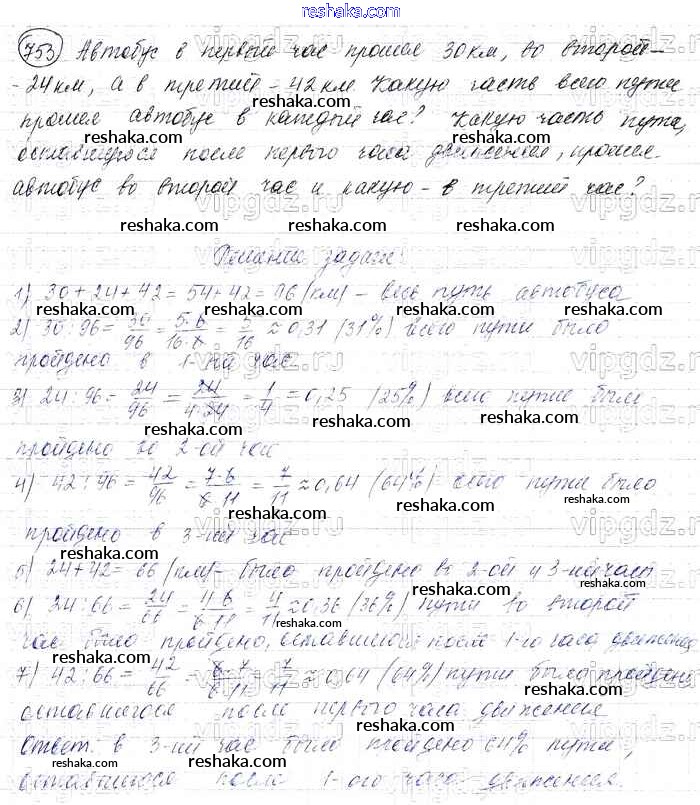 reshaka.com
753 Автобус в первый час прошел 30 км, во второй -
- 24 км, а в третий - 42 км. Какую часть всего пути
reshaka.com reshaka.com
прошел автобус в каждый час? Какую часть пути,
reshaka.com
оставшегося после первого часа движения, прошел
reshaka.com
автобус во второй час и какую - в третий час?
vipgdz.ru vipgdz.ru vipgdz.ru
reshaka.com reshaka.com reshaka.com
Решение задачи
1) 30+24+42=54+42=96 (км) - весь путь автобуса
reshaka.com reshaka.com
2) 30:96=30/96=5·6/16·6=5/16≈0,31 (31%) всего пути было
пройдено в 1-ый час
reshaka.com reshaka.com
3) 24:96=24/96=24/4·24=1/4=0,25 (25%) всего пути было
reshaka.com
пройдено во 2-ой час
reshaka.com reshaka.com
4) 42:96=42/96=7·6/6·11=7/11≈0,64 (64%) всего пути было
reshaka.com
пройдено в 3-ий час
reshaka.com reshaka.com
5) 24+42=66 (км) - было пройдено во 2-ой и 3-ий часы
reshaka.com
6) 24:66=24/66=4·6/6·11=4/11≈0,36 (36%) пути во второй
reshaka.com reshaka.com
час было пройдено, оставшегося после 1-го часа движения
reshaka.com
7) 42:66=42/66=6·7/6·11=7/11≈0,64 (64%) пути было пройдено
reshaka.com reshaka.com
оставшегося после первого часа движения
reshaka.com
Ответ: в 3-ий час было пройдено 64% пути,
reshaka.com reshaka.com
оставшегося после 1-ого часа движения.